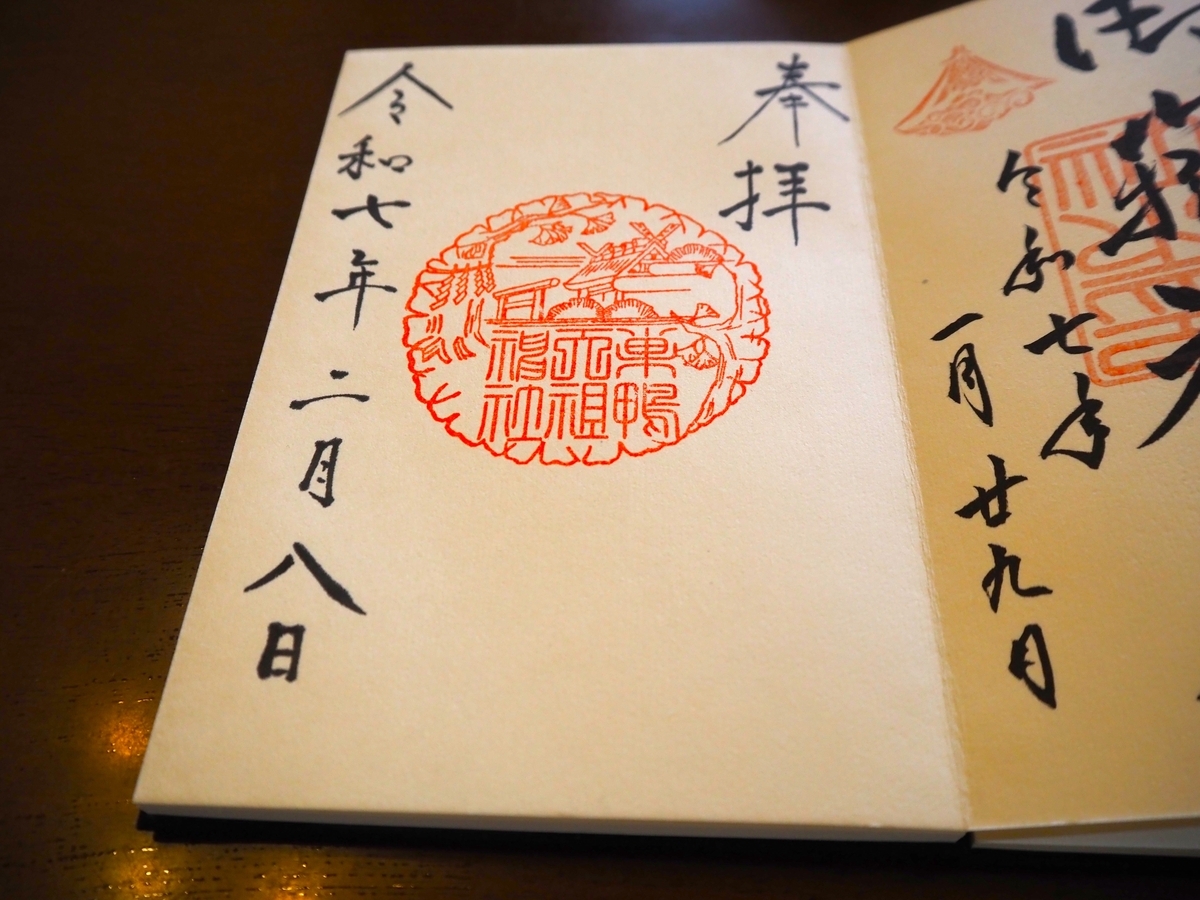 令和七年
一月廿九日
奉拝
巣鴨
天祖
神社
令和七年二月八日